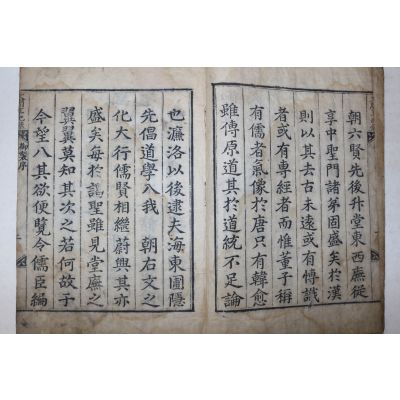 朝六賢先後升堂東西廡從
享中聖門諸弟固盛矣於漢
則以其去古未遠或有傳識
者或有專經者而惟董子稱
有儒者氣像於唐只有韓愈
雖傳原道其於道統不足論
也濂洛以後逮夫海東圃隱
先倡道學入我 朝右文之
化大行儒賢相繼蔚興其亦
盛矣每於謁聖雖見堂廡之
翼翼莫知其次之若何故子
今望八其欲便覽令儒臣編
御製序